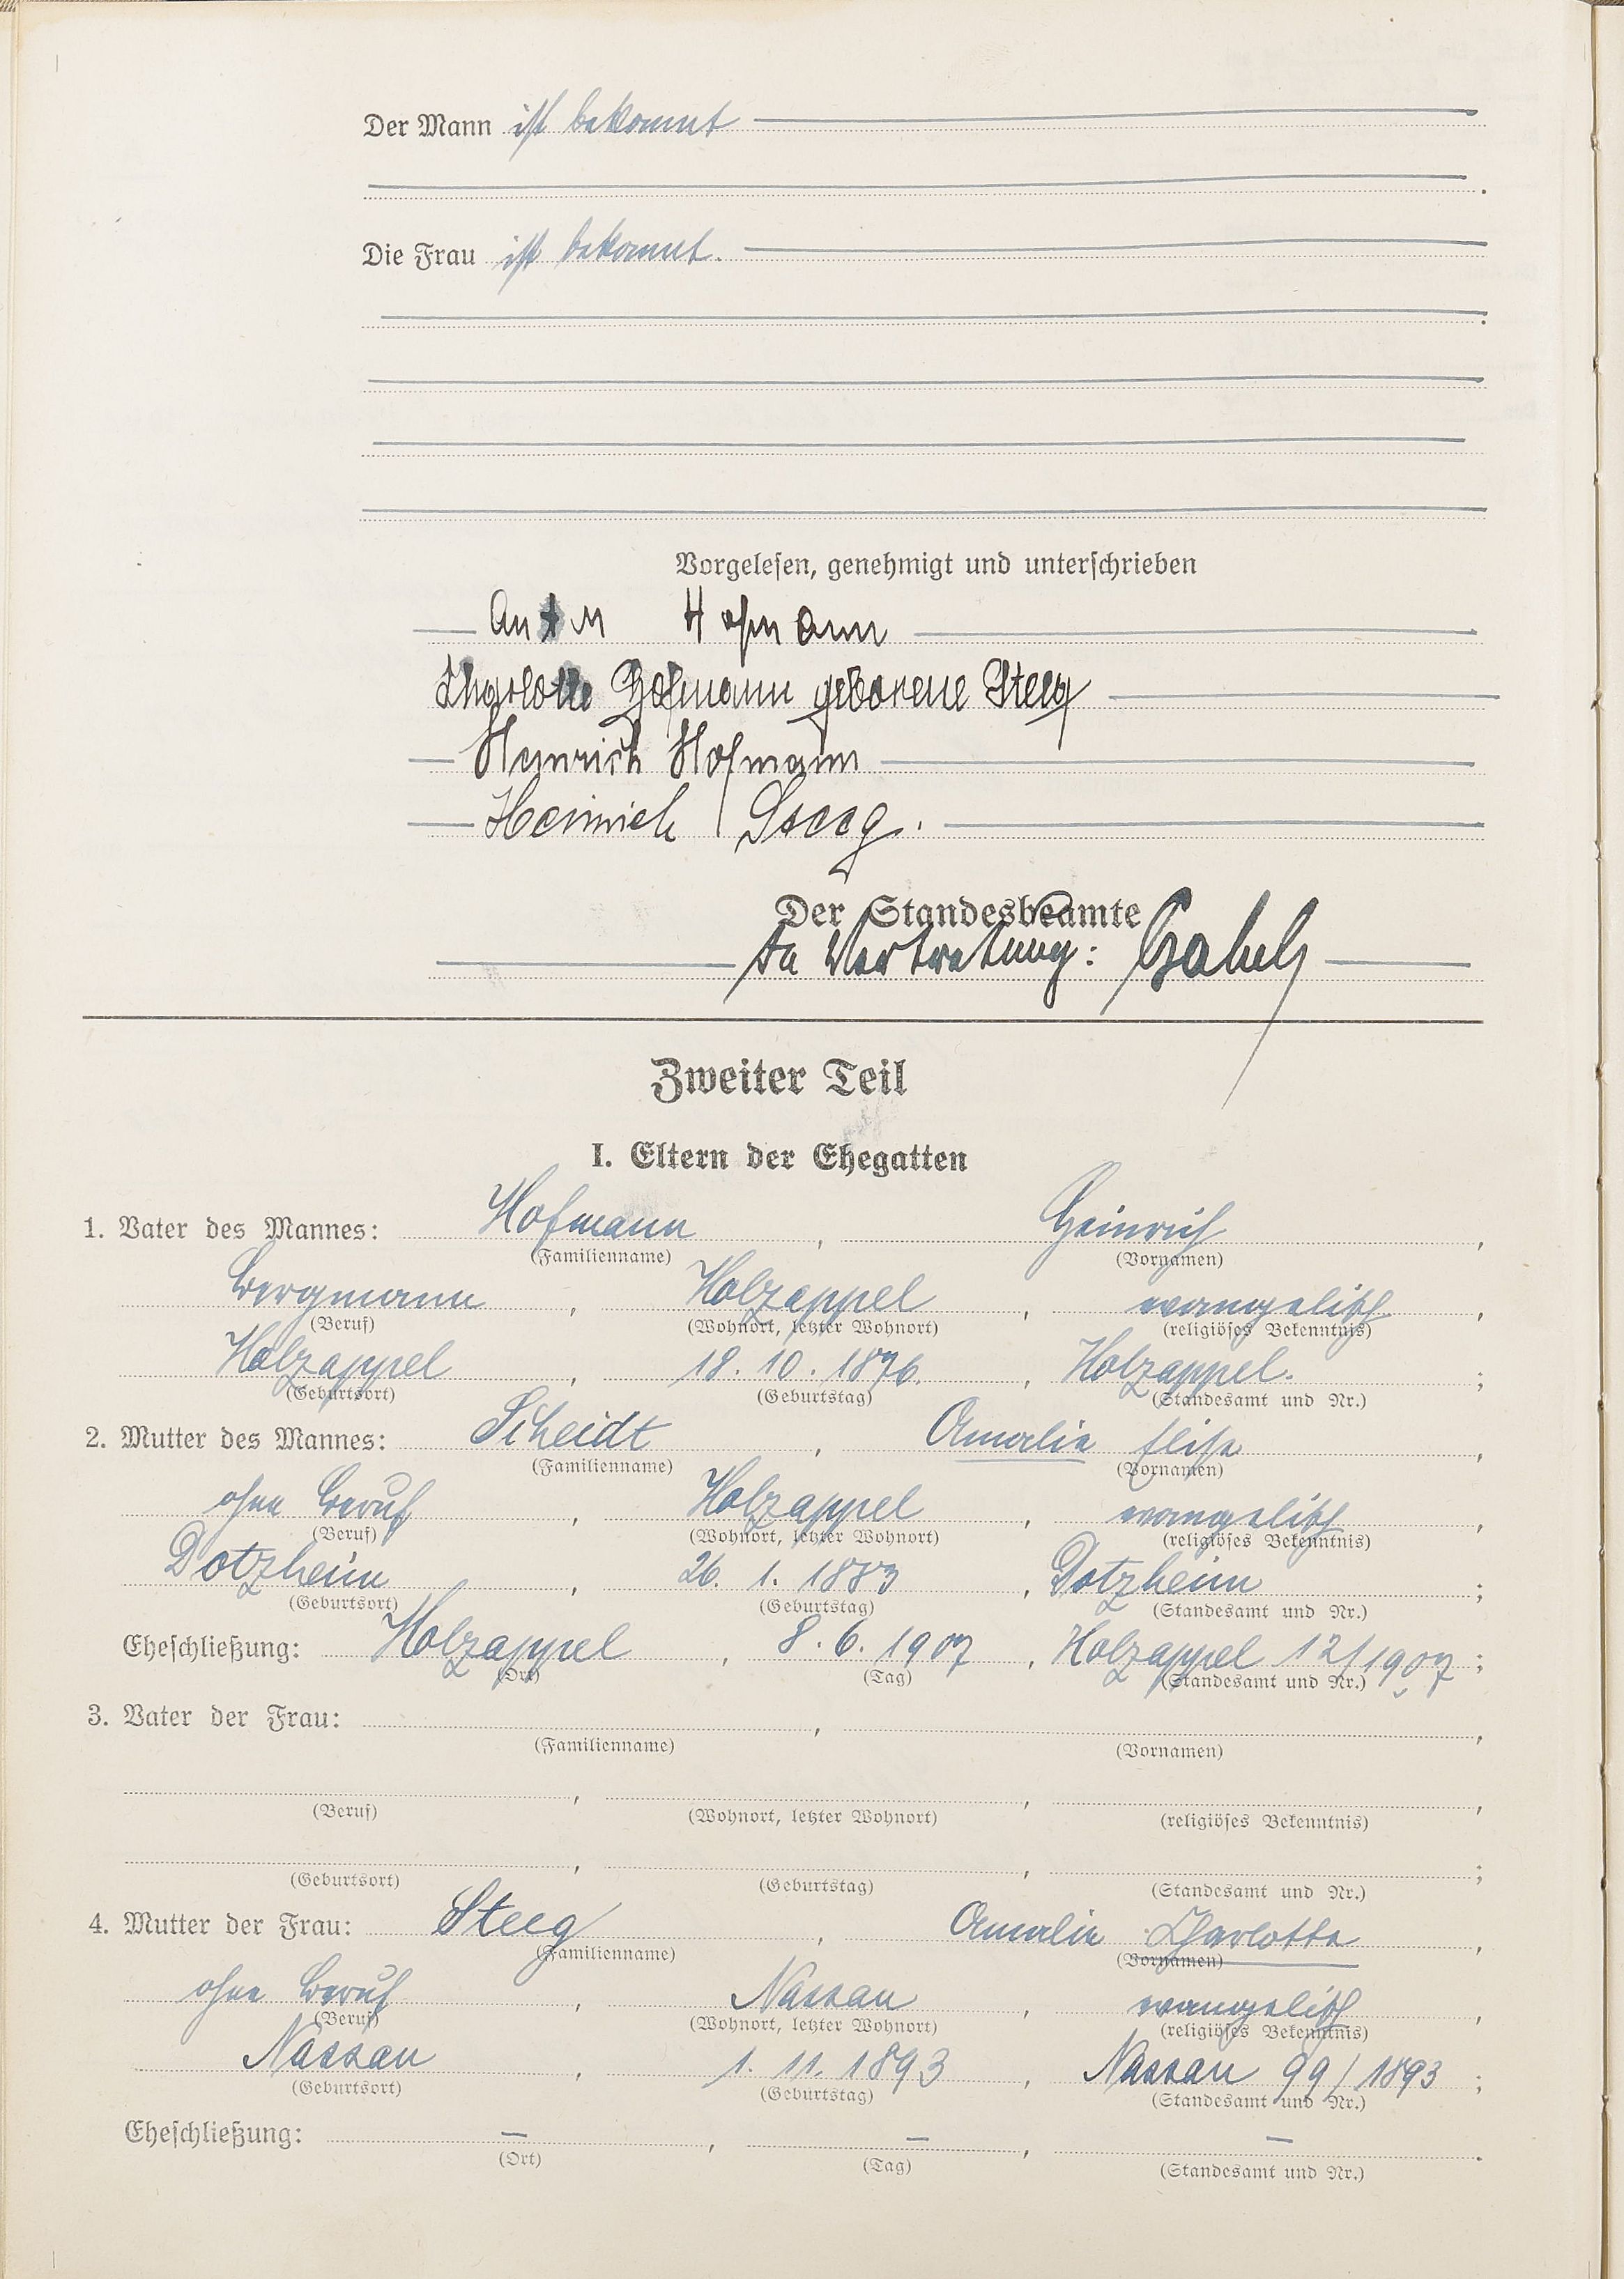 Der Mann ist bekannt
Die Frau ist bekannt.
Vorgelesen, genehmigt und unterschrieben
Anton Hofmann
Charlotte Hofmann geborene Steeg
Heinrich Hofmann
Heinrich Steeg.
Der Standesbeamte
In Vertretung:
Zweiter Teil
I. Eltern der Ehegatten
1. Vater des Mannes: Hofmann, Heinrich,
(Familienname) (Vornamen)
Bergmann, Holzappel, evangelisch,
(Beruf) (Wohnort, letzter Wohnort) (religiöses Bekenntnis)
Holzappel, 18. 10. 1876., Holzappel.;
(Geburtsort) (Geburtstag) (Standesamt und Nr.)
2. Mutter des Mannes: Scheidt, Amalie Elise,
(Familienname) (Vornamen)
ohne Beruf, Holzappel, evangelisch,
(Beruf) (Wohnort, letzter Wohnort) (religiöses Bekenntnis)
Dotzheim, 26. 1. 1883, Dotzheim;
(Geburtsort) (Geburtstag) (Standesamt und Nr.)
Eheschließung: Holzappel, 8. 6. 1907, Holzappel 12/1907;
(Ort) (Tag) (Standesamt und Nr.)
3. Vater der Frau: , ,
(Familienname) (Vornamen)
, , ,
(Beruf) (Wohnort, letzter Wohnort) (religiöses Bekenntnis)
, , ;
(Geburtsort) (Geburtstag) (Standesamt und Nr.)
4. Mutter der Frau: Steeg, Amalie Charlotte,
(Familienname) (Vornamen)
ohne Beruf, Nassau, evangelisch,
(Beruf) (Wohnort, letzter Wohnort) (religiöses Bekenntnis)
Nassau, 1. 11. 1893, Nassau 99/1893;
(Geburtsort) (Geburtstag) (Standesamt und Nr.)
Eheschließung: –, –, –.
(Ort) (Tag) (Standesamt und Nr.)